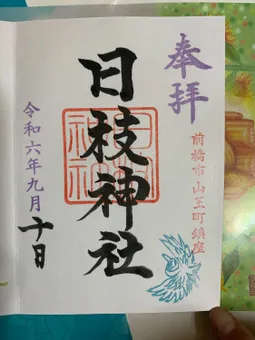 奉拝
前橋市山王町鎮座
日枝神社
令和六年九月十日